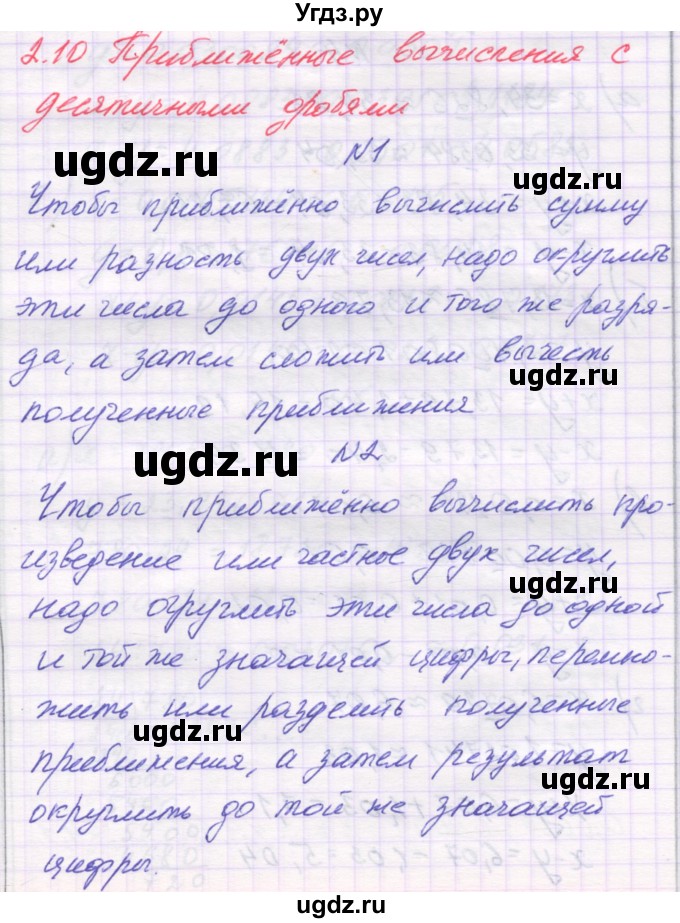 Угдз.ру
2.10 Приближённые вычисления с
десятичными дробями
ugdz.ru
ugdz.ru
№1
Чтобы приближённо вычислить сумму
ugdz.ru
или разность двух чисел, надо округлить
эти числа до одного и того же разря-
да, а затем сложить или вычесть
ugdz.ru
полученные приближения
ugdz.ru
№2
Чтобы приближённо вычислить про-
изведение или частное двух чисел,
ugdz.ru
надо округлить эти числа до одной
и той же значащей цифры, перемно-
жить или разделить полученные
ugdz.ru
приближения, а затем результат
ugdz.ru
округлить до той же значащей
цифры.
ugdz.ru